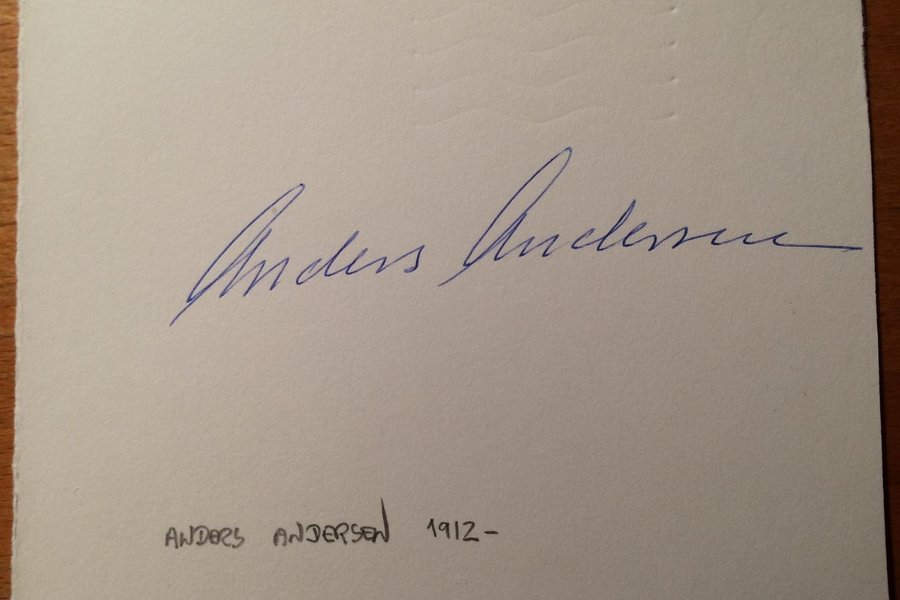 Anders Andersen
ANDERS ANDERSEN 1912-